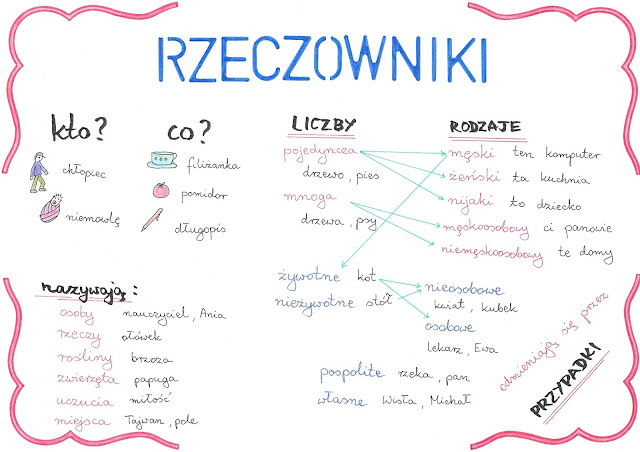 RZECZOWNIKI
kto?
chłopiec
niemowlę
co?
filiżanka
pomidor
długopis
nazywają:
osoby nauczyciel, Ania
rzeczy ołówek
rośliny brzoza
zwierzęta papuga
uczucia miłość
miejsca Tajwan, pole
LICZBY
pojedyncza
drzewo, pies
mnoga
drzewa, psy
RODZAJE
męski ten komputer
żeński ta kuchnia
nijaki to dziecko
męskoosobowy ci panowie
niemęskoosobowy te domy
żywotne kot
nieżywotne stół
nieosobowe
kwiat, kubek
osobowe
lekarz, Ewa
pospolite rzeka, pan
własne Wisła, Michał
odmieniają się przez
PRZYPADKI